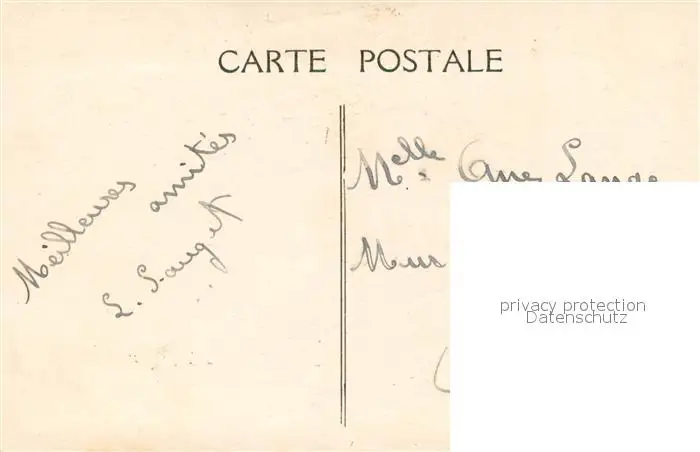 CARTE POSTALE
Meilleures amités
L. Lauget
Melle
Mus
privacy protection
Datenschutz